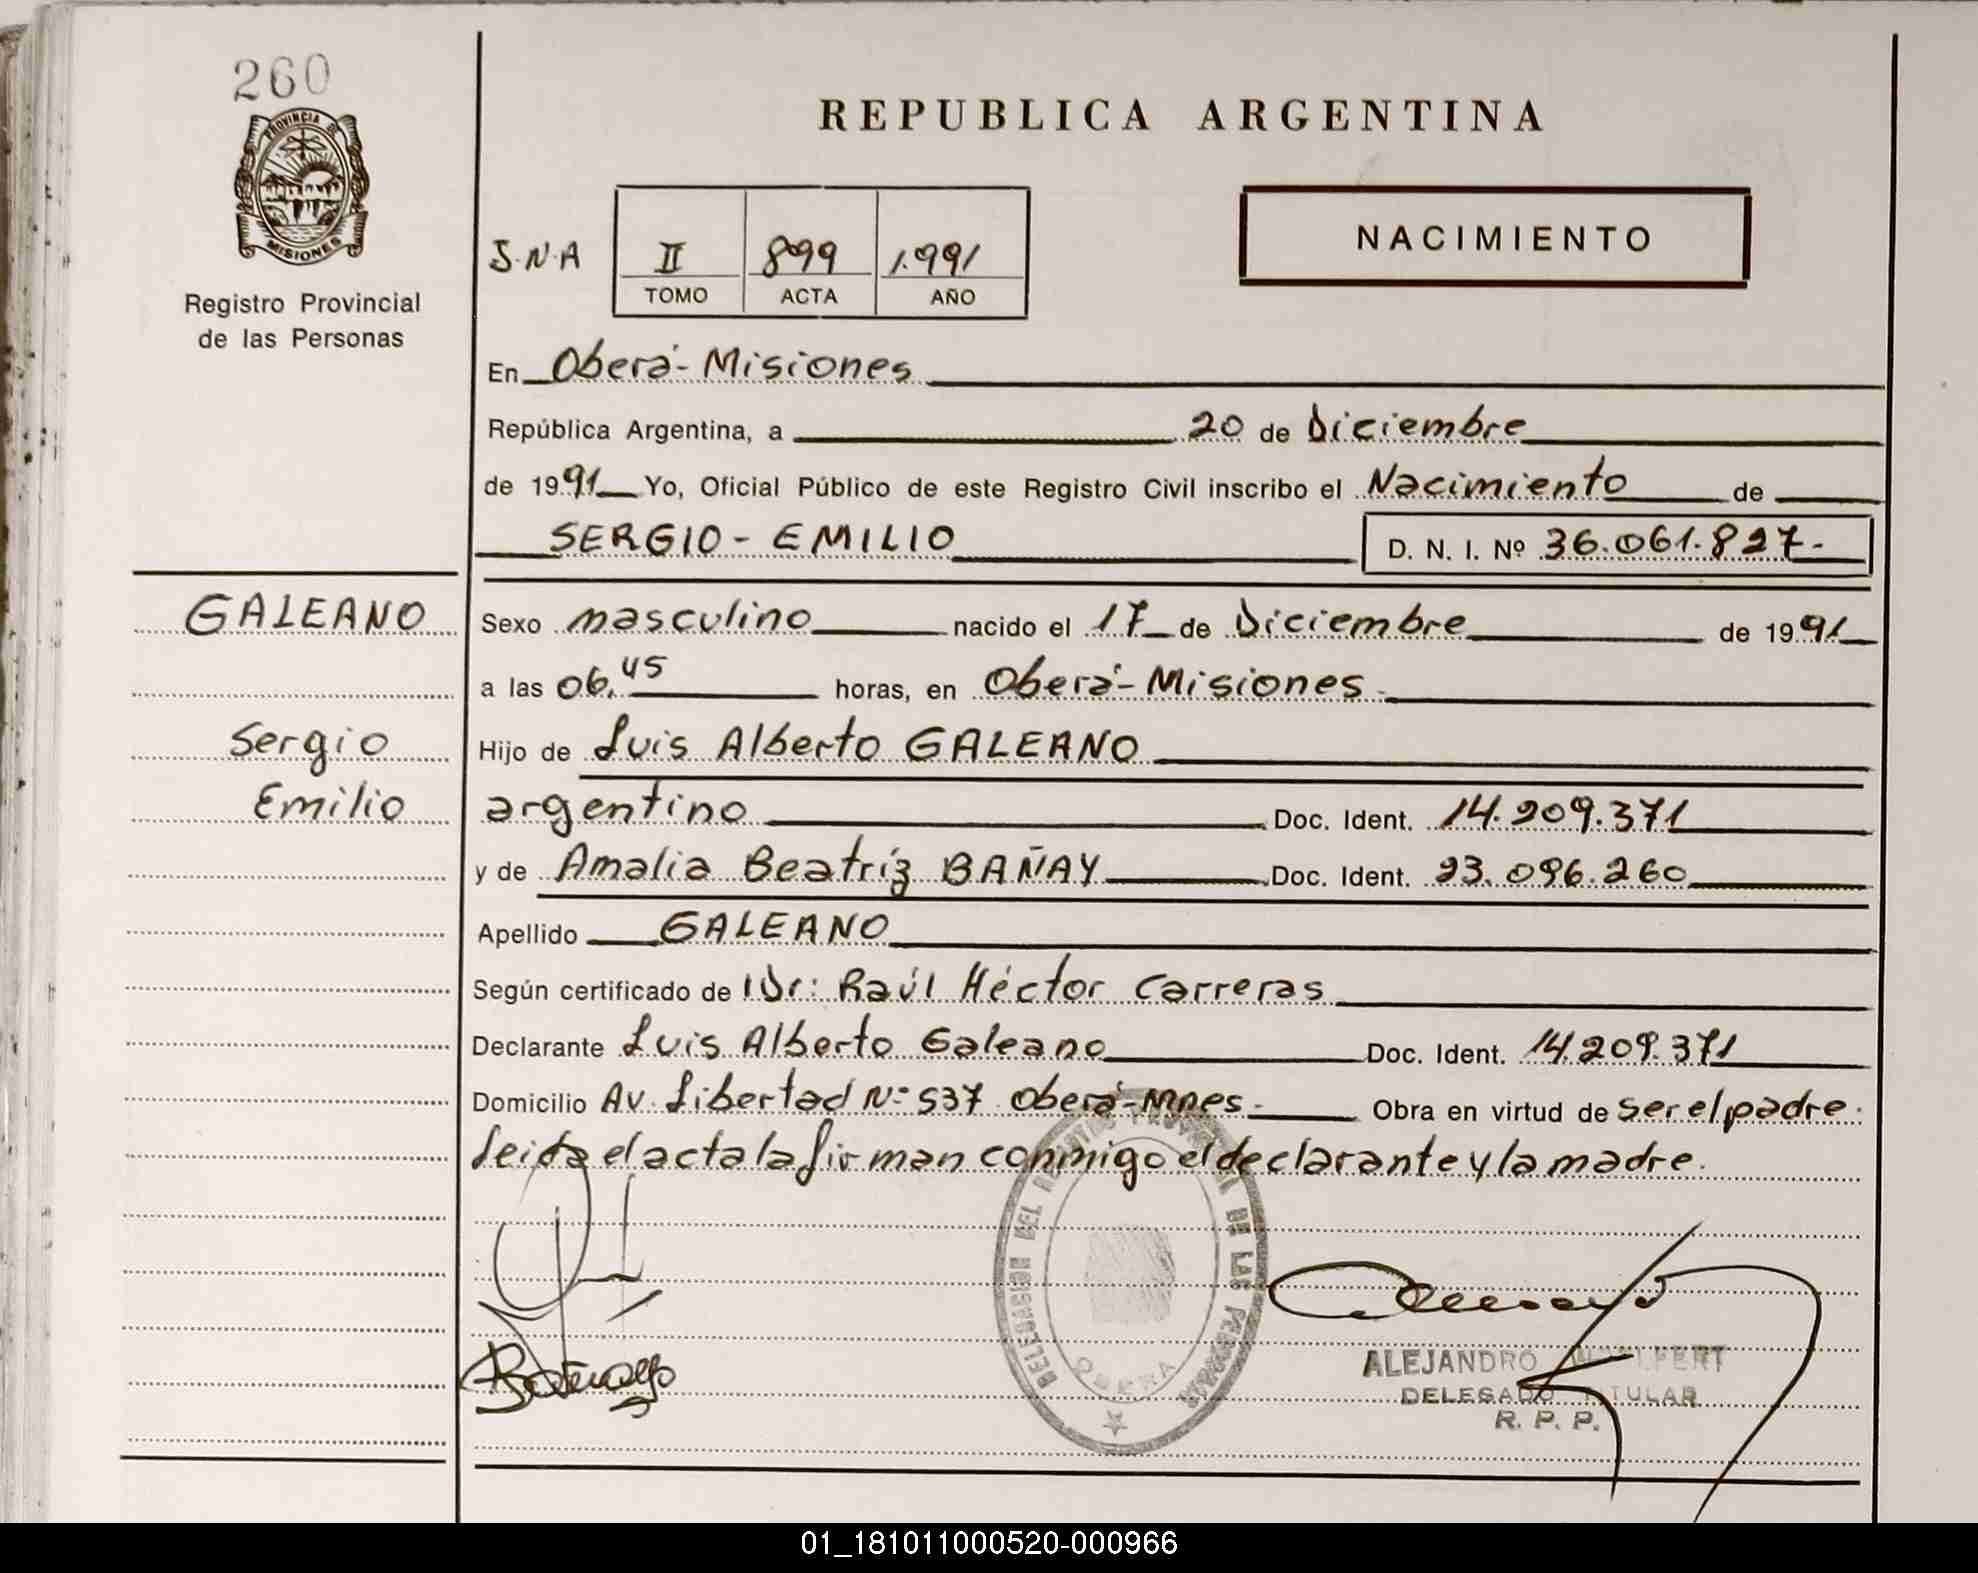 260
PROVINCIA DE
MISIONES
Registro Provincial
de las Personas
REPUBLICA ARGENTINA
NACIMIENTO
J.N.A II 899 1.991
TOMO ACTA AÑO
En Oberá - Misiones
República Argentina, a 20 de Diciembre
de 1991 Yo, Oficial Público de este Registro Civil inscribo el Nacimiento de
SERGIO - EMILIO D. N. I. Nº 36.061.827-
GALEANO
Sergio
Emilio
Sexo masculino nacido el 17 de Diciembre de 1991
a las 06,45 horas, en Oberá - Misiones
Hijo de Luis Alberto GALEANO
argentino Doc. Ident. 14.209.371
y de Amalia Beatríz BAÑAY Doc. Ident. 23.096.260
Apellido GALEANO
Según certificado de Dr: Raúl Héctor Carreras
Declarante Luis Alberto Galeano Doc. Ident. 14.209.371
Domicilio Av. Libertad Nº 537 Oberá - Mnes. Obra en virtud de ser el padre.
Leida el acta la firman conmigo el declarante y la madre.
DELEGACION DEL REGISTRO PROVINCIAL DE LAS PERSONAS
OBERA
ALEJANDRO
DELEGADO TITULAR
R. P. P.
01_181011000520-000966